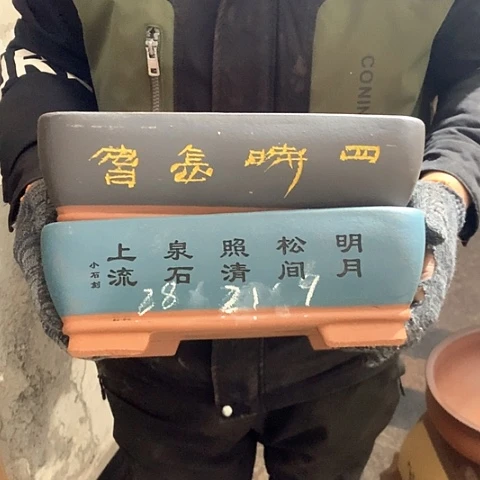 四時長春
明月
松间
照清
泉石
上流
小石刻
28×21×9
CONIN